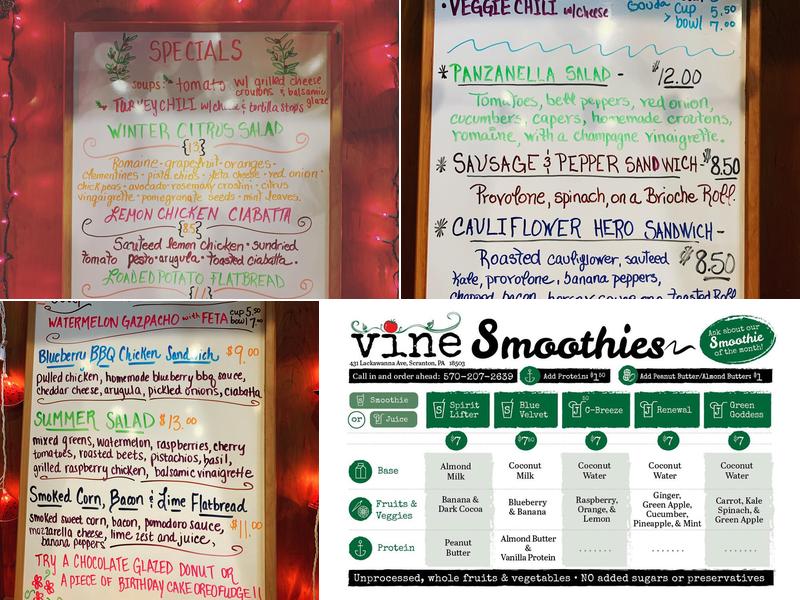 SPECIALS
soups: tomato w/ grilled cheese
croutons & balsamic
glaze
TURKEY CHILI w/ cheese & tortilla strips
WINTER CITRUS SALAD
{13}
Romaine · grapefruit · oranges ·
clementines · pistachios · feta cheese · red onion ·
chickpeas · avocado · rosemary crostini · citrus
vingaigrette · pomegranate seeds · mint leaves.
LEMON CHICKEN CIABATTA
{8.5}
Sauteed lemon chicken · sundried
tomato pesto · arugula · toasted ciabatta.
LOADED POTATO FLATBREAD
• VEGGIE CHILI w/ cheese
Gouda cup 5.50
> bowl 7.00
* PANZANELLA SALAD - $12.00
Tomatoes, bell peppers, red onion,
cucumbers, capers, homemade croutons,
romaine, with a champagne vinaigrette.
* SAUSAGE & PEPPER SANDWICH - $8.50
Provolone, spinach, on a Brioche Roll.
* CAULIFLOWER HERO SANDWICH -
Roasted cauliflower, sauteed $8.50
Kale, provolone, banana peppers,
chopped bacon, on a Toasted Roll
WATERMELON GAZPACHO with FETA cup 5.50
bowl 7.00
Blueberry BBQ Chicken Sandwich $9.00
pulled chicken, homemade blueberry bbq sauce,
cheddar cheese, arugula, pickled onions, ciabatta
SUMMER SALAD $13.00
mixed greens, watermelon, raspberries, cherry
tomatoes, roasted beets, pistachios, basil,
grilled raspberry chicken, balsamic vinaigrette
Smoked Corn, Bacon & Lime Flatbread
smoked sweet corn, bacon, pomodoro sauce, $11.00
mozzarella cheese, lime zest and juice,
banana peppers
TRY A CHOCOLATE GLAZED DONUT OR
A PIECE OF BIRTHDAY CAKE OREO FUDGE!!
vine Smoothies
431 Lackawanna Ave, Scranton, PA 18503
Ask about our
Smoothie
of the month!
Call in and order ahead: 570-207-2639 Add Protein: $1.50 Add Peanut Butter/Almond Butter: $1
Smoothie
or Juice
S Spirit Lifter
S Blue Velvet
SJ C-Breeze
J Renewal
J Green Goddess
$7 $7.50 $7 $7 $7
Base
Almond Milk
Coconut Milk
Coconut Water
Coconut Water
Coconut Water
Fruits & Veggies
Banana & Dark Cocoa
Blueberry & Banana
Raspberry, Orange, & Lemon
Ginger, Green Apple, Cucumber, Pineapple, & Mint
Carrot, Kale Spinach, & Green Apple
Protein
Peanut Butter
Almond Butter & Vanilla Protein
.......
.......
.......
Unprocessed, whole fruits & vegetables • NO added sugars or preservatives